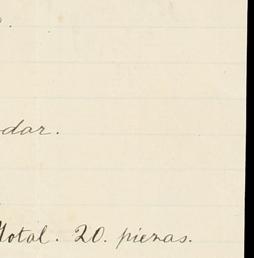 dar.
Total. 20. piezas.